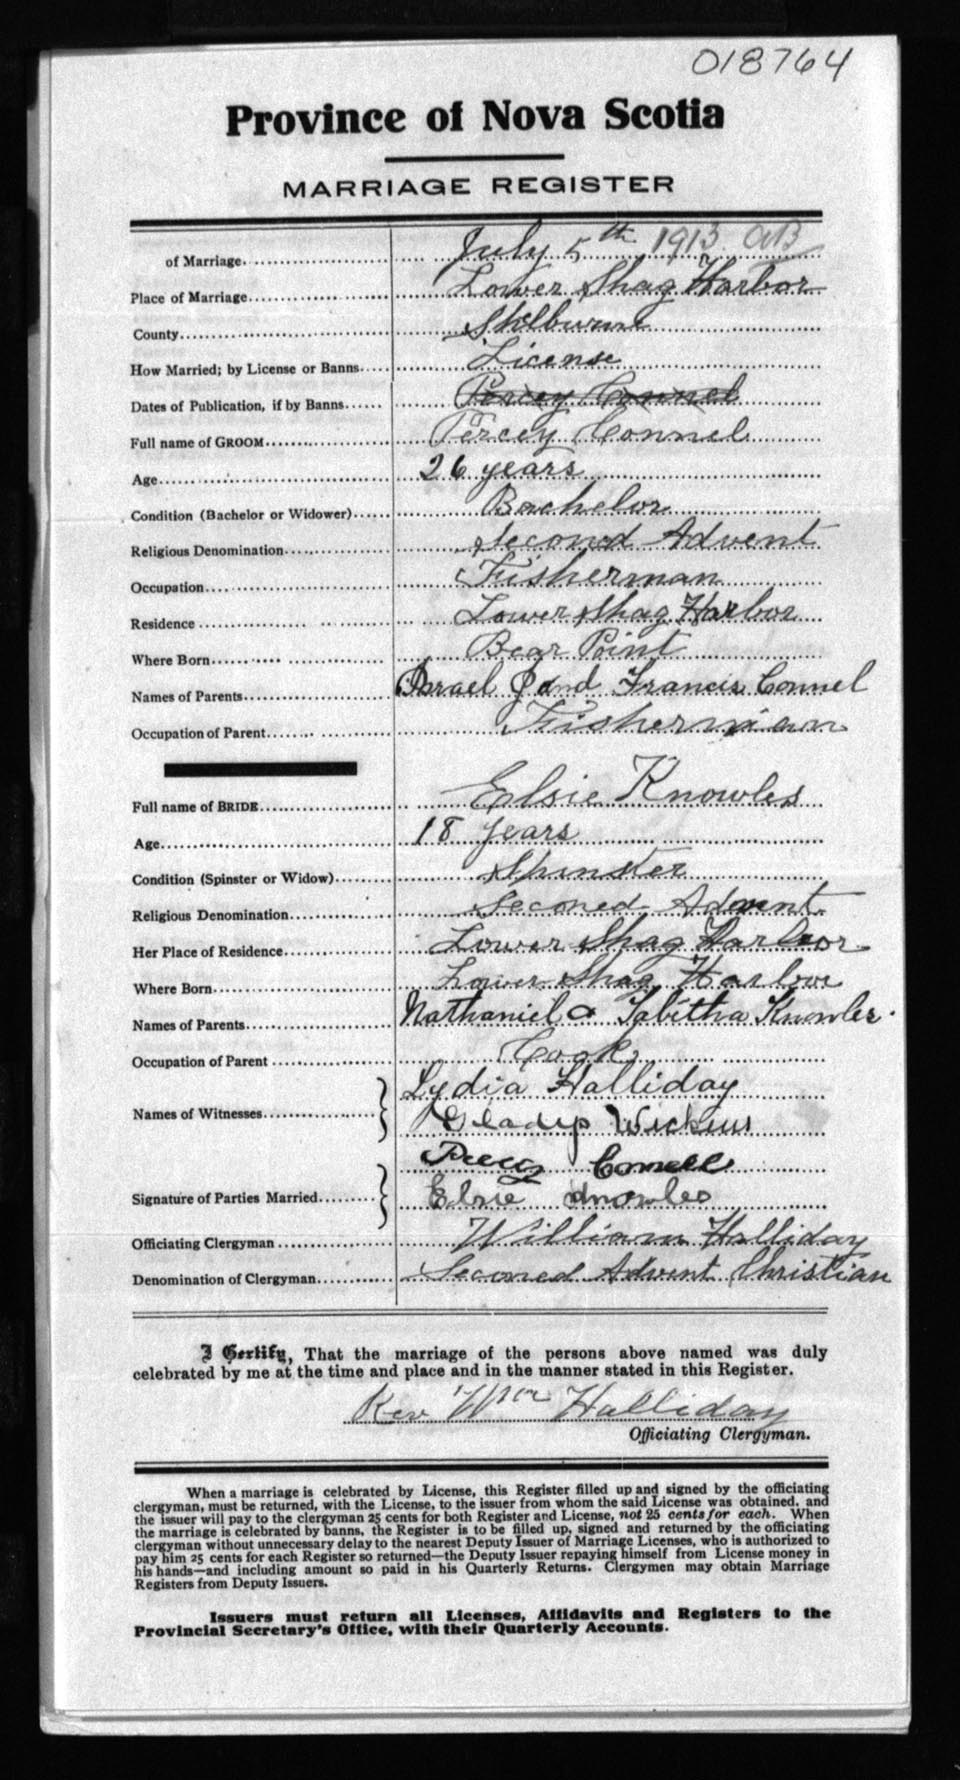 018764
Province of Nova Scotia
MARRIAGE REGISTER
of Marriage July 5th 1913
Place of Marriage Lower Shag Harbor
County Shelburne
How Married; by License or Banns License
Dates of Publication, if by Banns Percey Connel
Full name of GROOM Percey Connel
Age 26 years
Condition (Bachelor or Widower) Bachelor
Religious Denomination Seconed Advent
Occupation Fisherman
Residence Lower Shag Harbor
Where Born Bear Point
Names of Parents Israel J and Francis Connel
Occupation of Parent Fisherman
Full name of BRIDE Elsie Knowles
Age 18 years
Condition (Spinster or Widow) Spinster
Religious Denomination Seconed Advent
Her Place of Residence Lower Shag Harbor
Where Born Lower Shag Harbor
Names of Parents Nathaniel & Tabitha Knowles
Occupation of Parent Cook
Lydia Halliday
Names of Witnesses
Gladys
Connell
Signature of Parties Married Elsie Knowles
Officiating Clergyman William Halliday
Denomination of Clergyman Seconed Advent Christian
I Certify, That the marriage of the persons above named was duly
celebrated by me at the time and place and in the manner stated in this Register.
Rev Wm Halliday
Officiating Clergyman.
When a marriage is celebrated by License, this Register filled up and signed by the officiating
clergyman, must be returned, with the License, to the issuer from whom the said License was obtained, and
the issuer will pay to the clergyman 25 cents for both Register and License, not 25 cents for each. When
the marriage is celebrated by banns, the Register is to be filled up, signed and returned by the officiating
clergyman without unnecessary delay to the nearest Deputy Issuer of Marriage Licenses, who is authorized to
pay him 25 cents for each Register so returned—the Deputy Issuer repaying himself from License money in
his hands—and including amount so paid in his Quarterly Returns. Clergymen may obtain Marriage
Registers from Deputy Issuers.
Issuers must return all Licenses, Affidavits and Registers to the
Provincial Secretary's Office, with their Quarterly Accounts.